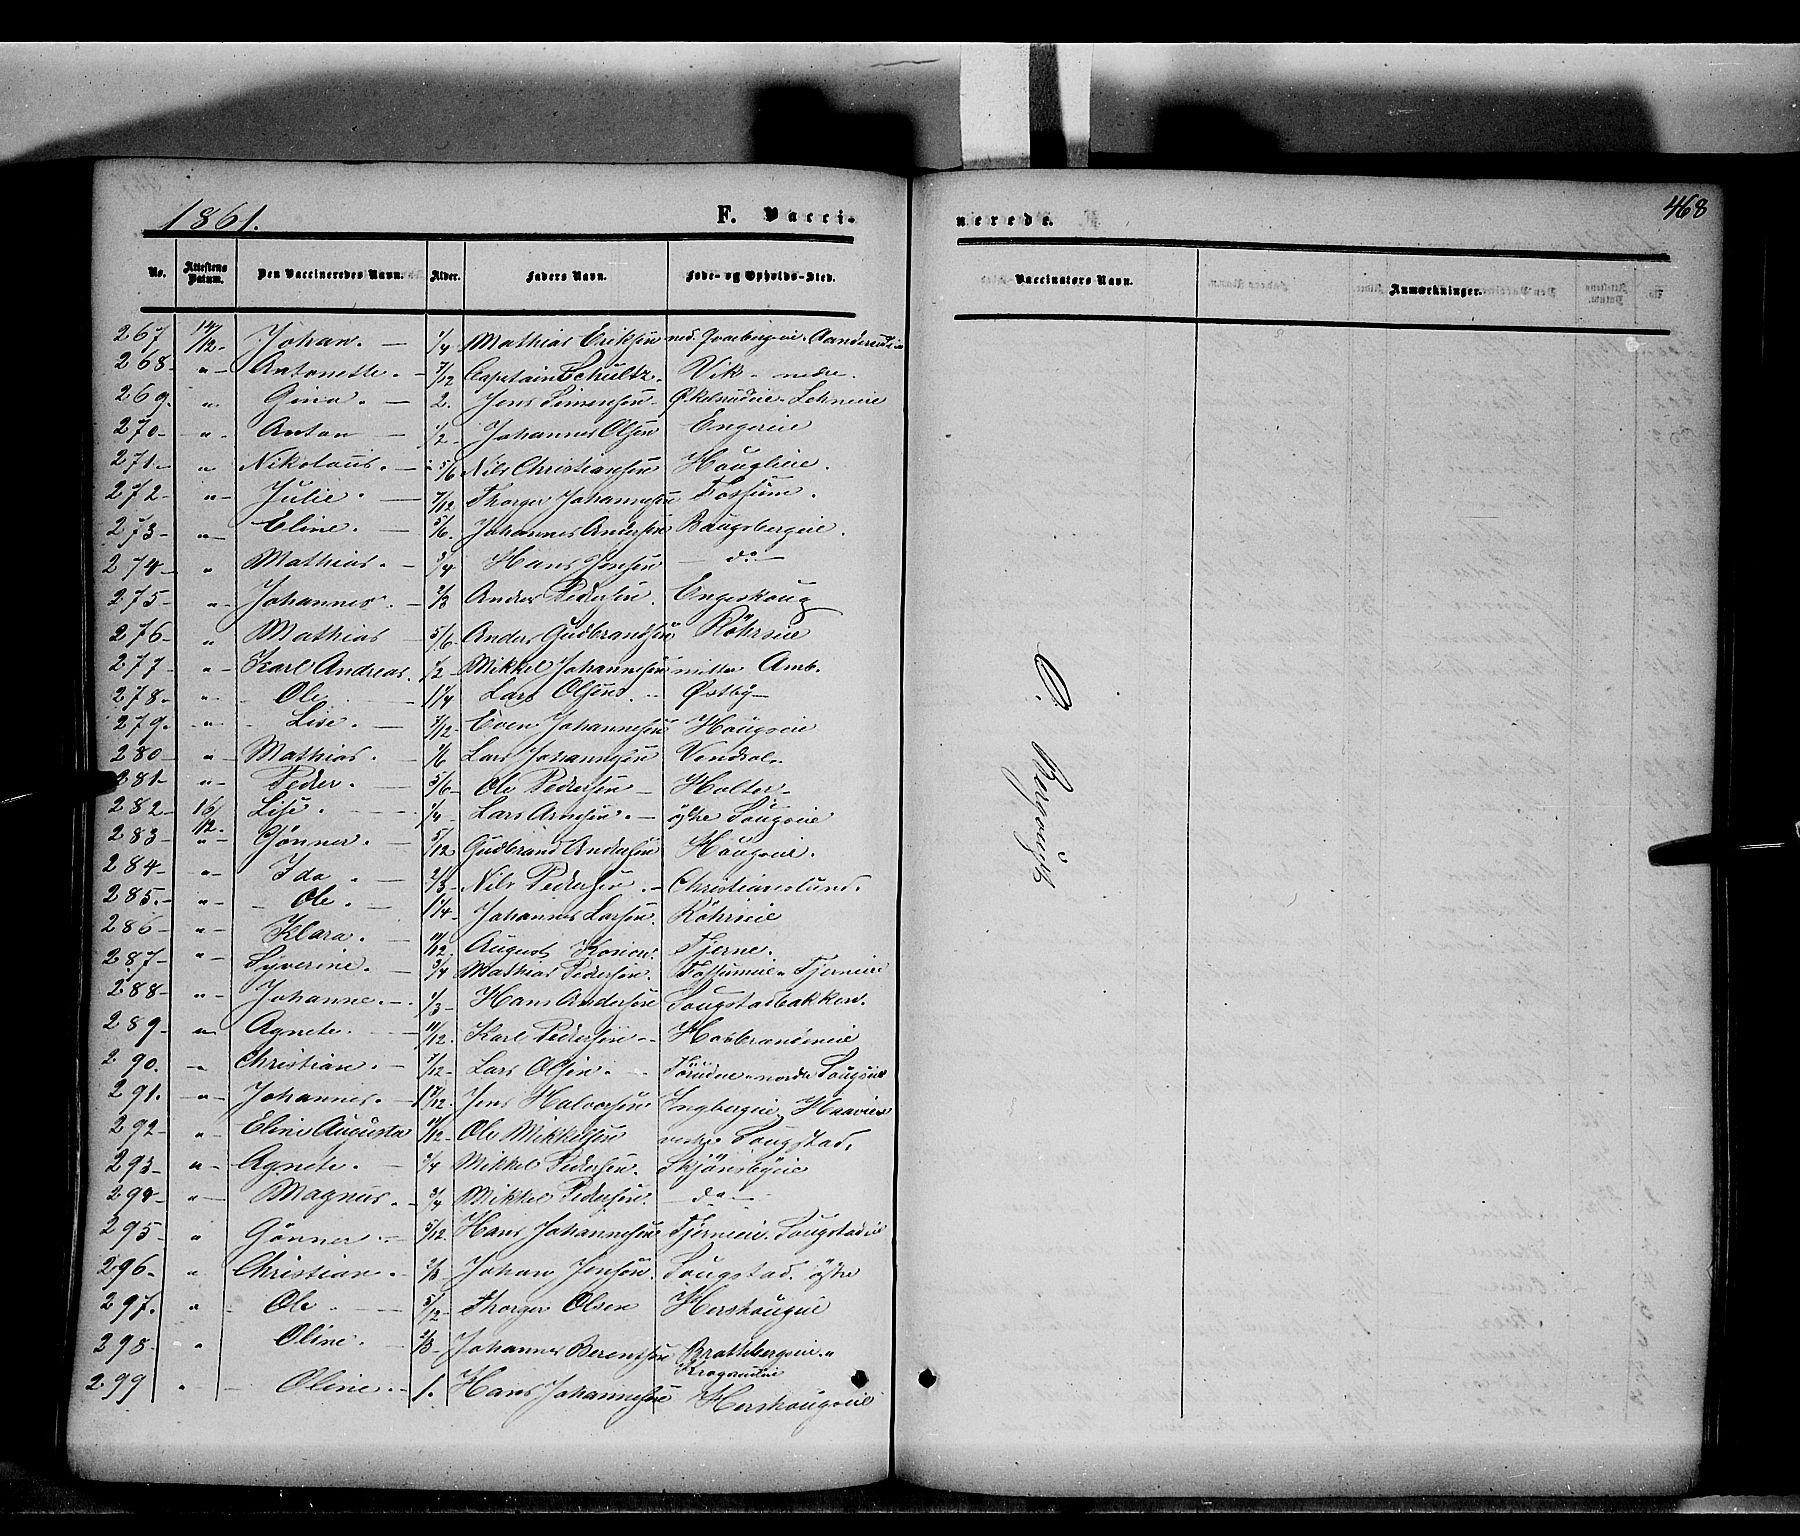 1861.
F. Vacci-
nerede.
468
No. Attestens Datum. Den Vaccineredes Navn. Alder. Faders Navn. Føde- og Opholds-Sted.
Vaccinators Navn. Anmærkninger.
267 14/12 Johan. 1/4 Mathias Eriksen
268 " Antonette. 7/12 Capitain Schultz. Vik nedre.
269. " Gina. 2. Jens Simensen
270 " Anton 1/2 Johannes Olsen Engereie
271 " Nikolaus. 5/6 Nils Christiansen Houglieie.
272 " Julie. 7/12 Thorger Johannesen Fossum.
273 " Eline. 5/6. Johannes Andersen Baugsbergeie.
274 " Mathias. 3/4 Hans Jensen do
275 " Johannes. 2/3 Anders Pedersen. Engeskoug
276 " Mathias 5/6 Anders Gudbrandsen Röhrseie
277 " Karl Andreas. 1/2 Mikkel Johannesen mittre Amb.
278. " Ole 1 1/4 Lars Olsen. Østby
279. " Lise. 7/12 Even Johannesen Hougseie
280 " Mathias. 1/6 Lars Johannesen
281 " Peder. 5/6 Ole Pedersen Holter
282 16/12 Lise. 1/4 Lars Arnesen. østre Sougseie
283 " Gønner. 5/12 Gudbrand Andersen Hougseie.
284 " Ida. 2/3 Nils Pedersen. Christianslund.
285. " Ole. 1 1/4 Johannes Larsen. Röhrseie
286 " Klara. 11/12 August Tjerne.
287 " Syverine. 3/4 Mathias Pedersen. Fossumeie Tjerneie
288 " Johanne. 1/3 Hans Andersen Sougstadbakken.
289 " Agnete. 11/12. Karl Pedersen
290. " Christian. 7/12 Lars Olsen. nordre Sougseie
291. " Johannes. 1 7/12. Jens Halvorsen
292 " Eline Augusta 11/12 Ole Mikkelsen vestre Sougstad.
293 " Agnete. 3/4 Mikkel Pedersen. Skjønsbyeie
294 " Magnus. 3/4 Mikkel Pedersen. do
295 " Gønner. 5/12 Hans Johannesen Tjerneie. Sougstadeie
296. " Christian. 2/3 Johan Jensen. Sougstad. østre
297. " Ole 5/12 Thorger Olsen Hershougeie
298 " Oline. 2/3 Johannes Berentsen Brattebergeie
299 " Oline. 1. Hans Johannesen Hershougseie